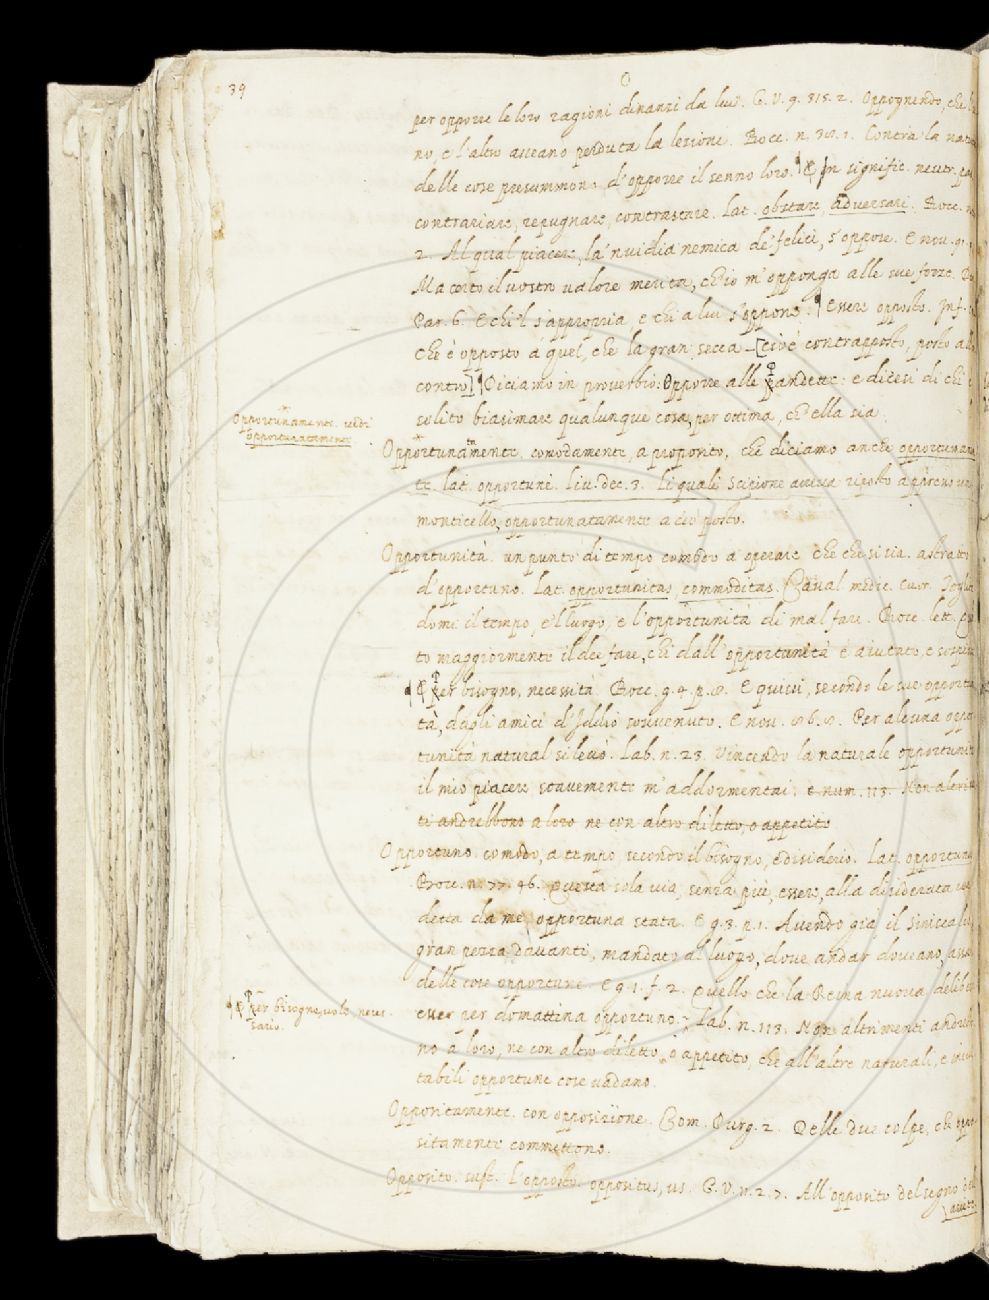 39
O
per opporre le loro ragioni dinanzi da lui. G. V. 9. 315. 2. Opponendo, che
no, e l'altro aveano perduta la lezione. Bocc. n. 32. 1. Contra la
delle cose presummono d'opporre il senno loro. ¶ E In signific. neutr.
contrariare, repugnare, contrastare. Lat. obstare, adversari. Bocc.
2. Al qual piacere, la 'nvidia nemica de' felici, s'oppose. E nov. 91.
Ma certo il vostro valore merita, ch'io m'opponga alle sue forze.
Par. 6. E chi 'l s'appropria e chi a lui s'oppone. ¶ Essere opposto. Inf.
Che è opposto a quel, che la gran secca [cioè contrapposto, posto
contro] ¶ Diciamo in proverbio: Opporre alle Pandette: e dicesi di chi è
solito biasimare qualunque cosa, per ottima, ch'ella sia.
Opportunamente. vedi
opportunatamente
Opportunamente. comodamente, a proposito, che diciamo anche opportunata
te. lat. opportunè. Liv. dec. 3. Li quali Scipione aveva riposto appreso
monticello, opportunatamente a ciò posto.
Opportunità. un punto di tempo comodo a operare che che si sia. astratto
d'opportuno. Lat. opportunitas, commoditas. Caval. medic. cuor.
domi il tempo, e 'l luogo, e l'opportunità di mal fare. Bocc. lett.
to maggiormente il dee fare, chi dall'opportunità è aiutato, e
¶ E Per bisogno, necessità. Bocc. g. 4. p. 2. E quivi, secondo le sue opportuni
tà, dagli amici d'Iddio sovvenuto. E nov. 26. 2. Per alcuna oppor
tunità natural si levò. Lab. n. 23. Vincendo la naturale opportunità
il mio piacere soavemente m'addormentai. E num. 113. Non altrimen
ti andrebbono a loro ne con altro diletto, o appetito
Opportuno. comodo, a tempo, secondo il bisogno, e disiderio. Lat. opportunus
Bocc. n. 77. 46. Questa sola via, senza più, essere, alla disiderata
detta da me, opportuna stata. E g. 3. p. 1. Avendo già il siniscalco
gran pezza davanti, mandato al luogo, dove andar doveano, assai
delle cose opportune. E g. 1. f. 2. Quello che la Reina nuova
esser per domattina opportuno. Lab. n. 113. Non altrimenti
¶ E Per Bisognevole, neces
sario.
no a loro, ne con altro diletto, o appetito, che all'altre naturali, e
tabili opportune cose vadano.
Oppositamente. con opposizione. Com. Purg. 2. Delle due colpe, che oppo
sitamente commettono.
Opposito. sust. l'opposto. oppositus, us. G. V. n. 2. 7. All'opposito del segno